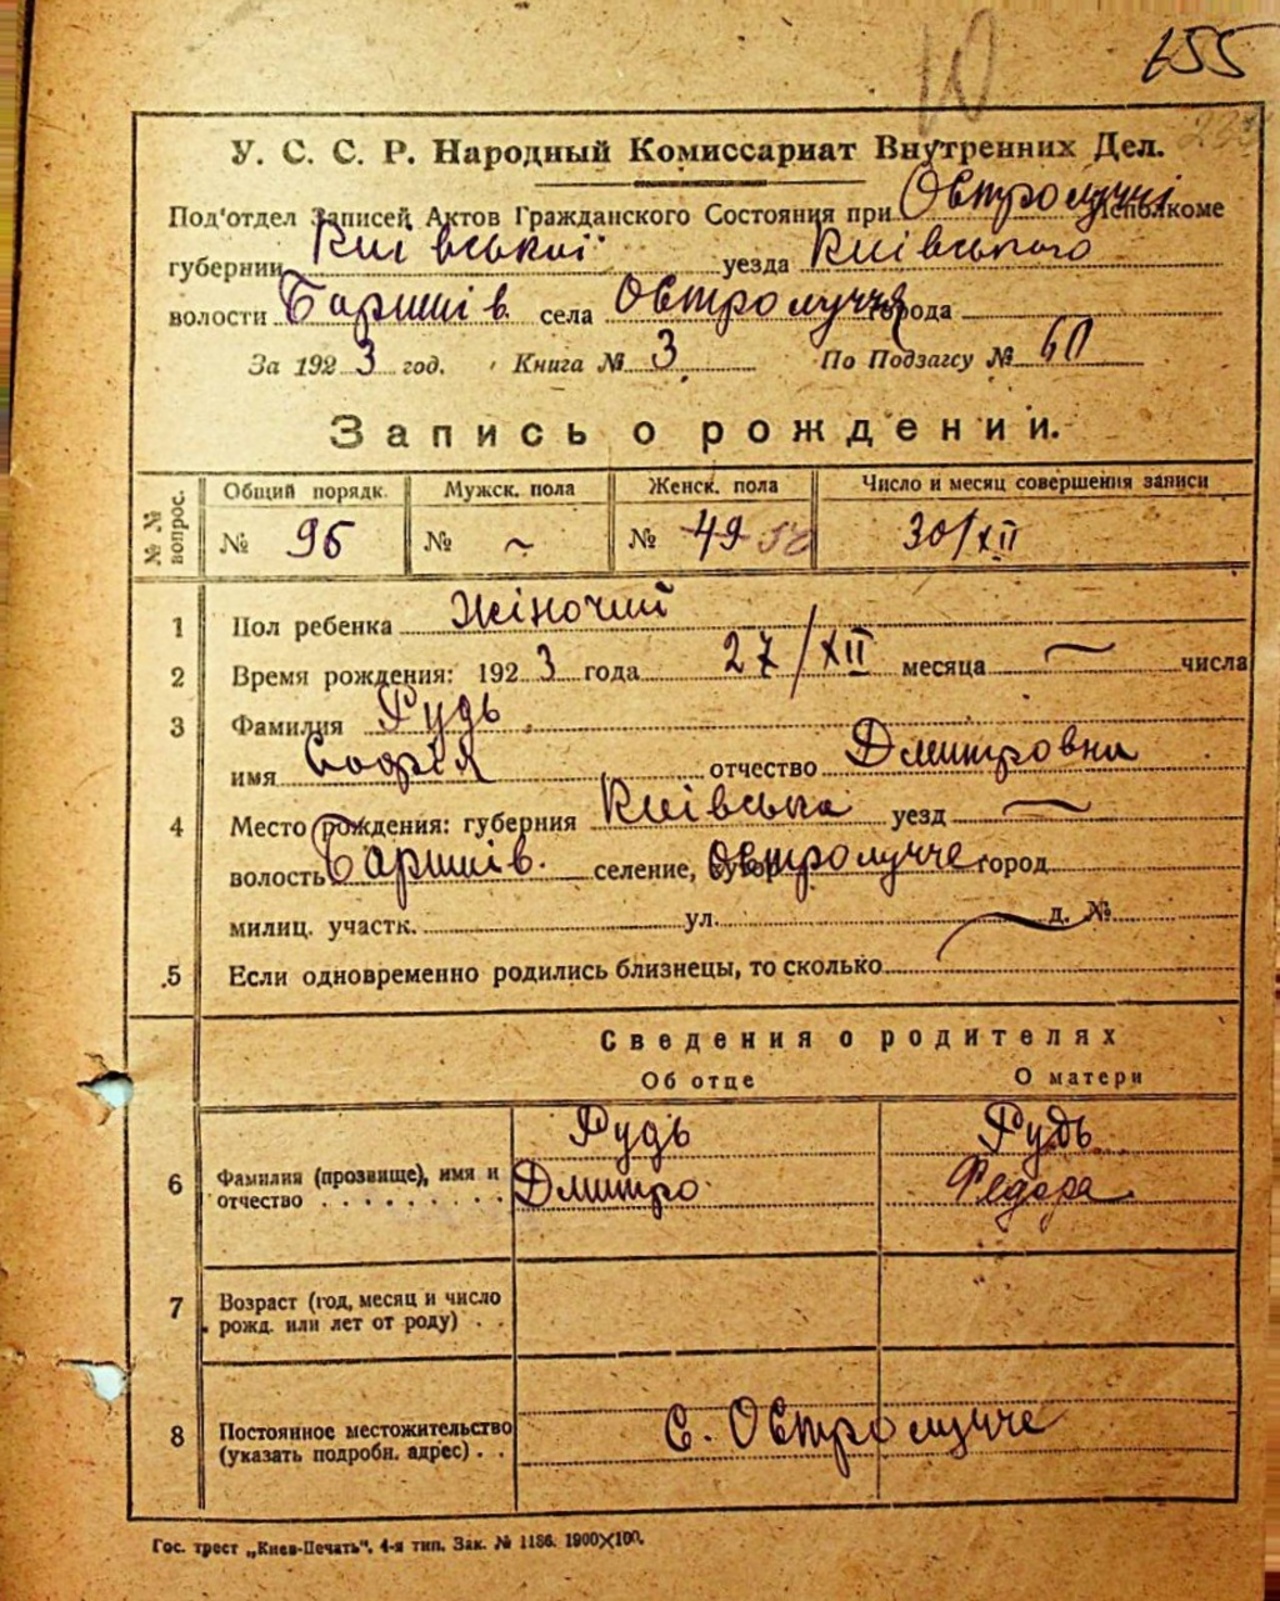 655
У. С. С. Р. Народный Комиссариат Внутренних Дел.
Под'отдел Записей Актов Гражданского Состояния при Остролуччі Исполкоме
губернии Київської уезда Київського
волости Баришів. села Остролуччя города
За 1923 год. Книга № 3 По Подзагсу № 60
Запись о рождении.
№№ вопрос. Общий порядк. Мужск. пола Женск. пола Число и месяц совершения записи
№ 96 № ~ № 49 50 30/XII
1 Пол ребенка Жіночий
2 Время рождения: 1923 года 27/XII месяца ~ числа
3 Фамилия Рудь
имя Софія отчество Дмитровна
4 Место рождения: губерния Київська уезд ~
волость Баришів. селение, хутор Остролучче город
милиц. участк. ул. д. №
5 Если одновременно родились близнецы, то сколько
Сведения о родителях
Об отце О матери
Рудь Рудь
6 Фамилия (прозвище), имя и отчество Дмитро Федора
7 Возраст (год, месяц и число
рожд. или лет от роду)
8 Постоянное местожительство
(указать подробн. адрес) С. Остролучче
Гос. трест „Киев-Печать“. 4-я тип. Зак. № 1186. 1900×100.